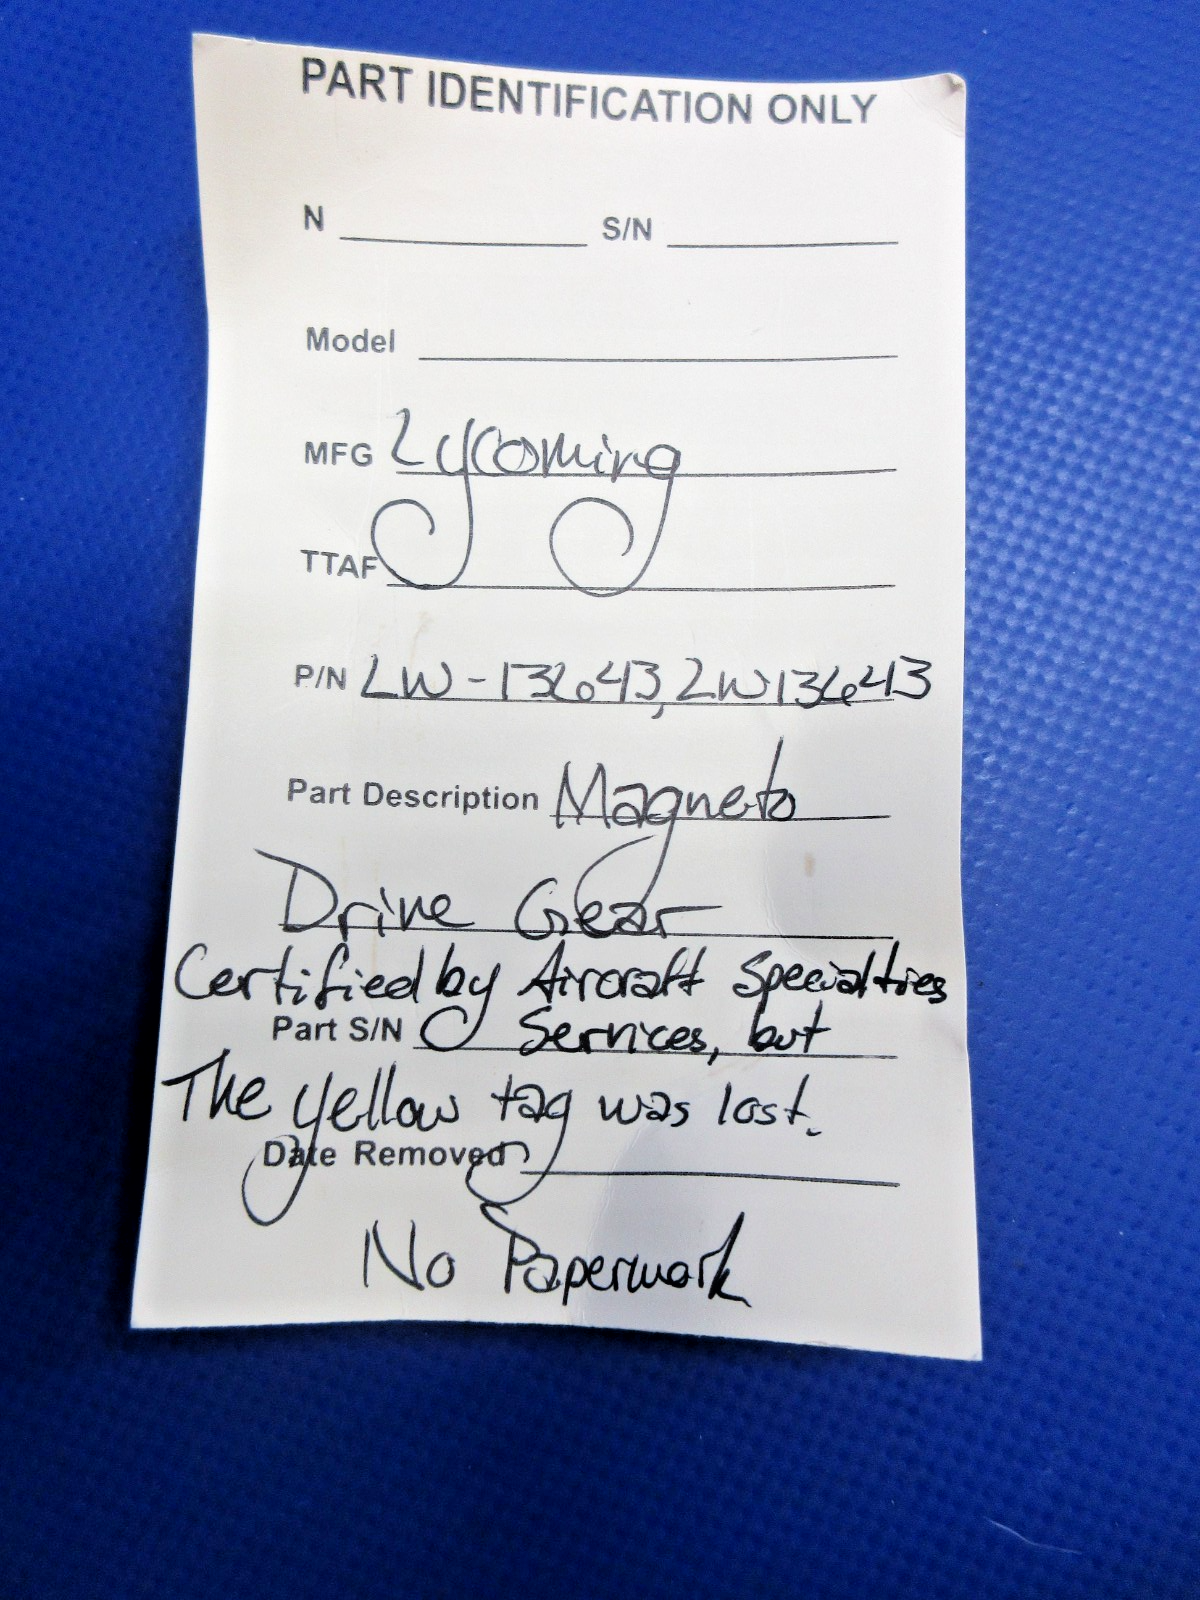 PART IDENTIFICATION ONLY
N S/N
Model
MFG Lycoming
TTAF
P/N LW-13643, LW13643
Part Description Magneto
Drive Gear
Certified by Aircraft Specialties
Part S/N Services, but
The yellow tag was lost.
Date Removed
No Paperwork